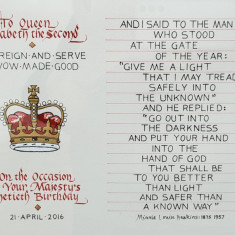 To Queen
abeth the Second
REIGN·AND·SERVE
VOW·MADE·GOOD
On the Occasion
Your Majesty's
Ninetieth Birthday
21·APRIL·2016
AND I SAID TO THE MAN
WHO STOOD
AT THE GATE
OF THE YEAR:
"GIVE ME A LIGHT
THAT I MAY TREAD
SAFELY INTO
THE UNKNOWN"
AND HE REPLIED:
"GO OUT INTO
THE DARKNESS
AND PUT YOUR HAND
INTO THE
HAND OF GOD
THAT SHALL BE
TO YOU BETTER
THAN LIGHT
AND SAFER THAN
A KNOWN WAY"
Minnie Louise Haskins: 1875-1957